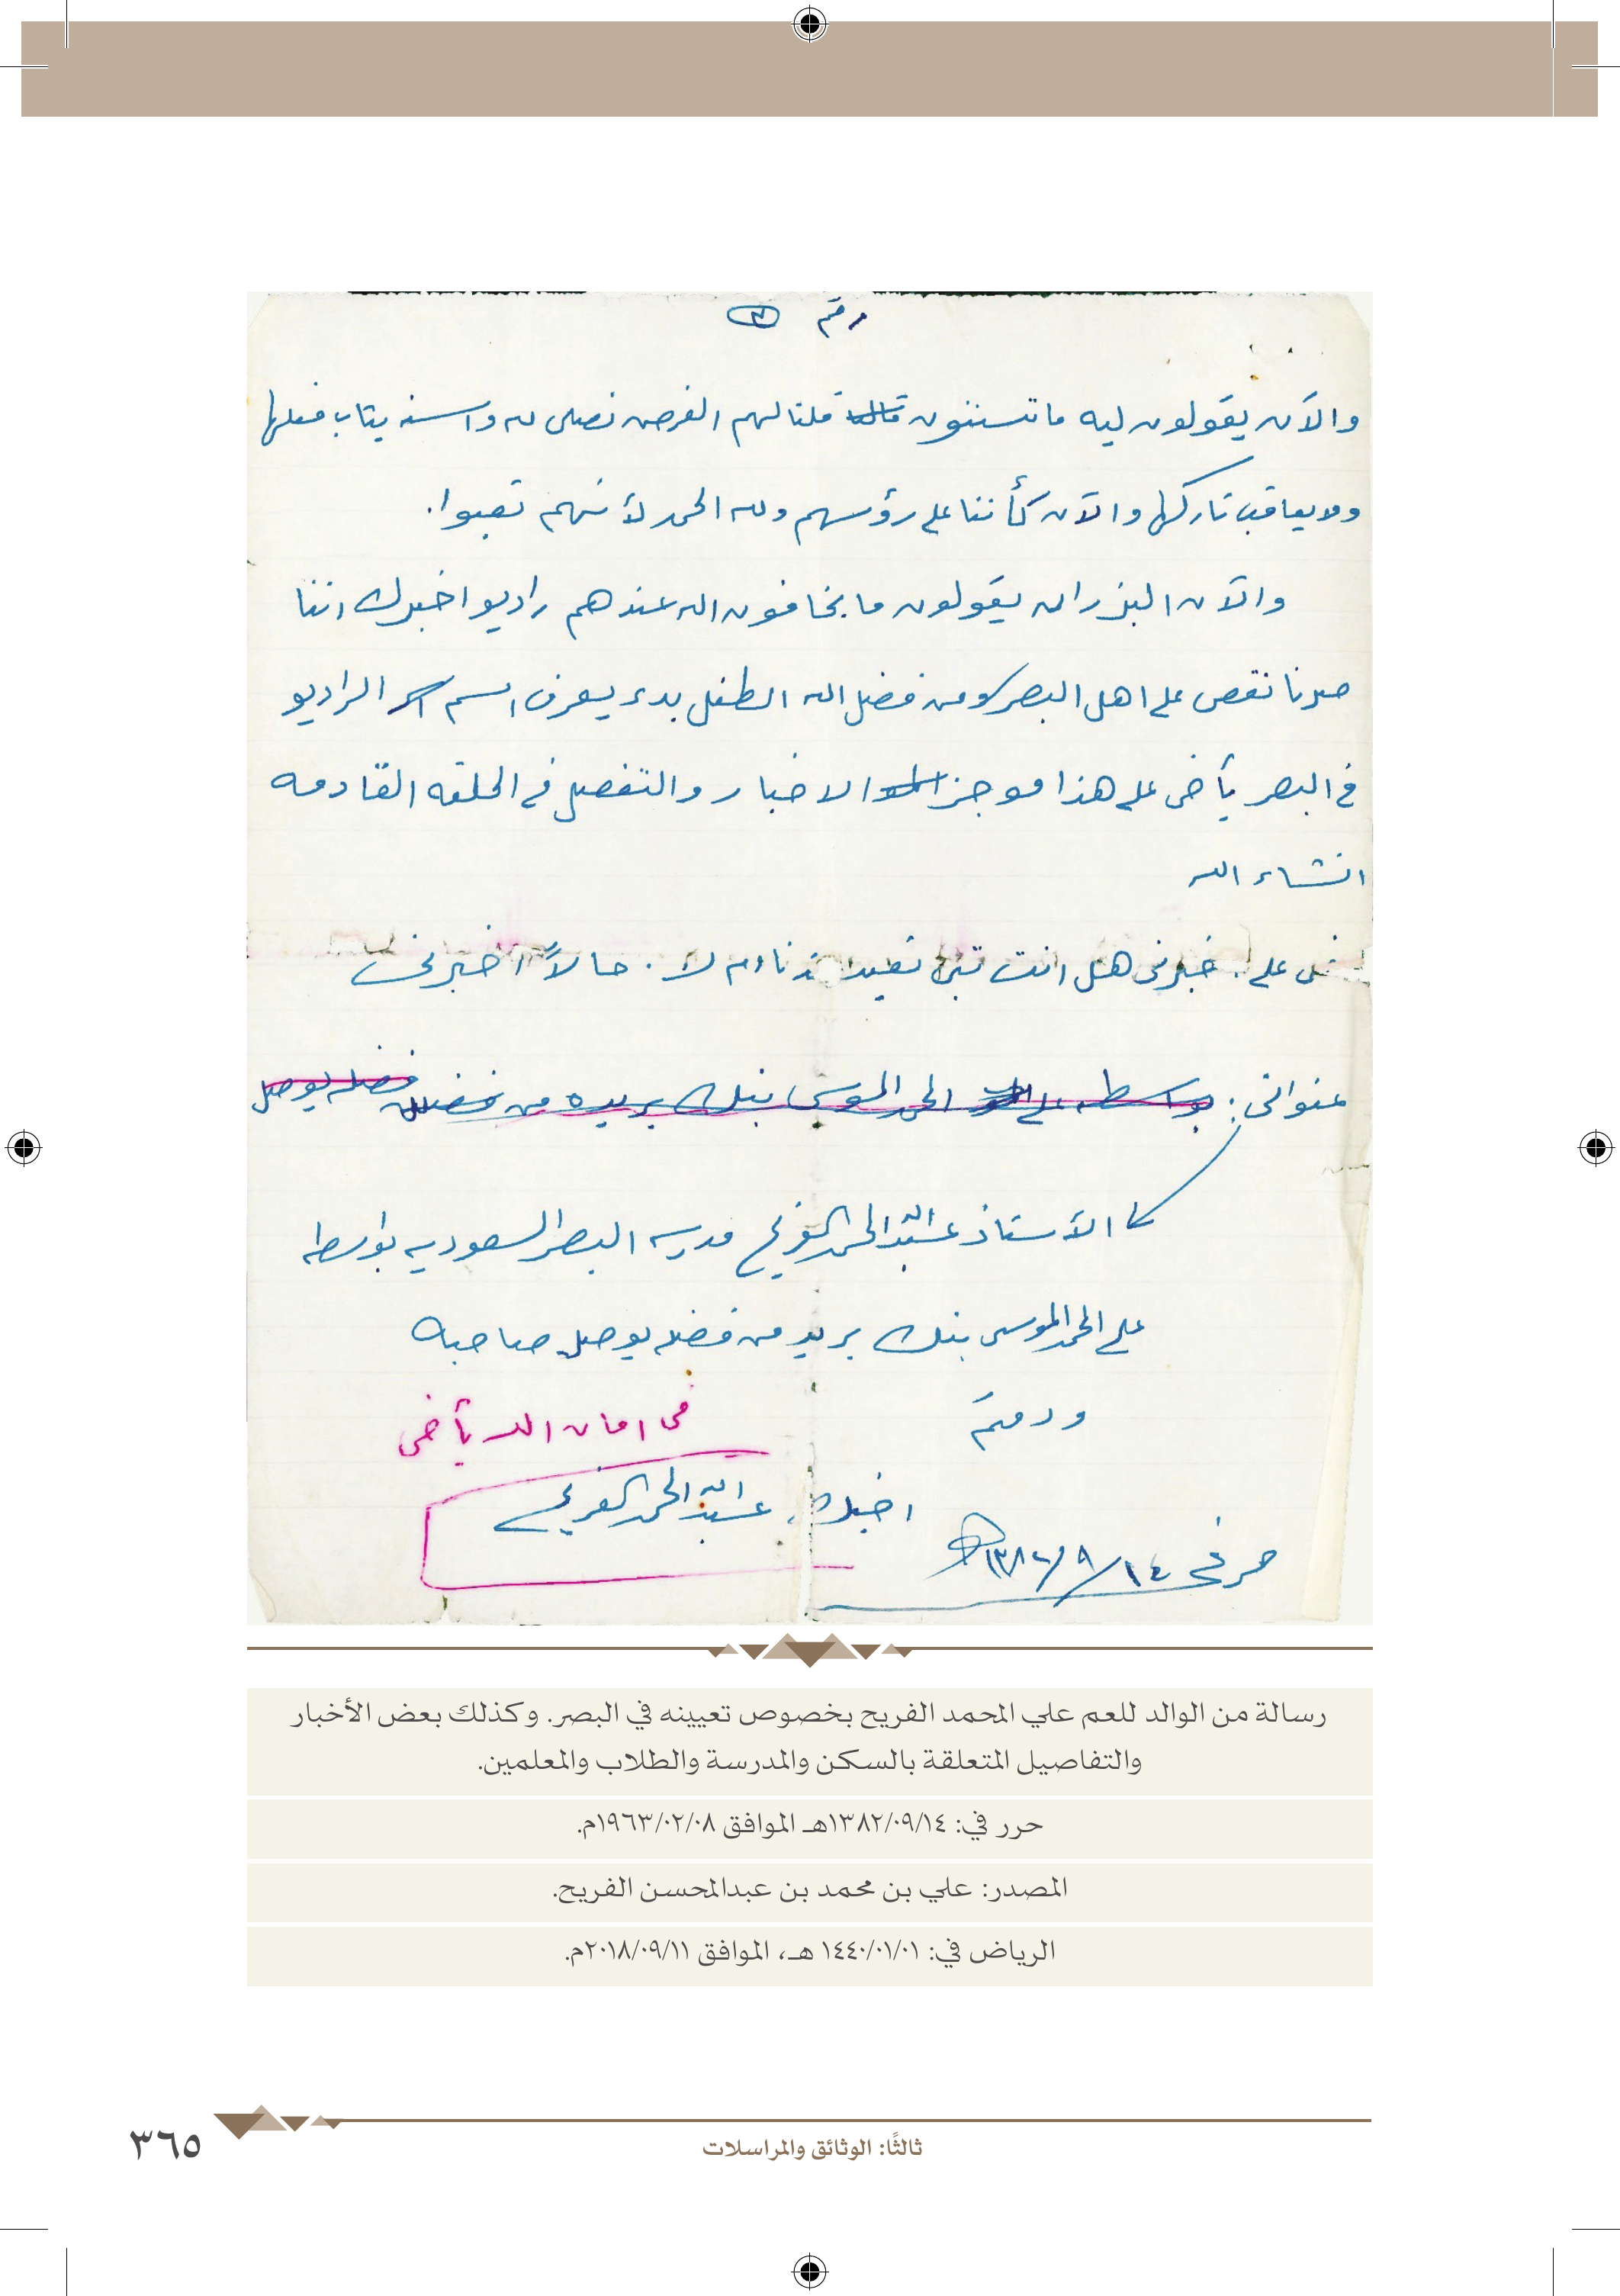 رقم ٣
والآن يقولون ليه ما تسننون قلنا لهم الفرض نصلى لله والسنه يثاب فعلها
ولا يعاقب تاركها والآن كأننا على رؤسهم ولله الحمد لأنهم تعبوا.
والآن البزران يقولون ما يخافون الله عندهم راديو اخبرك اننا
صرنا نقص على اهل البصر ومن فضل الله الطفل بدء يعرف اسم الراديو
في البصر يأخى على هذا موجز الاخبار والتفصيل في الحلقه القادمه
انشاء الله
على. خبرنى هل انت تبى تعيد ام لا. حالاً اخبرنى
عنوانى: بواسطه على الحمد الموسى بنك بريده من فضله يوصل
الأستاذ عبدالله الحمد الفريح مدرسه البصر السعوديه بواسطه
على الحمد الموسى بنك بريده من فضله يوصل صاحبه
ودمتم
فى امان الله يأخى
اخيك عبدالله الحمد الفريح
حرر في ١٣٨٢/٩/١٤هـ
رسالة من الوالد للعم علي المحمد الفريح بخصوص تعيينه في البصر. وكذلك بعض الأخبار
والتفاصيل المتعلقة بالسكن والمدرسة والطلاب والمعلمين.
حرر في: ١٣٨٢/٠٩/١٤هـ الموافق ١٩٦٣/٠٢/٠٨م.
المصدر: علي بن محمد بن عبدالمحسن الفريح.
الرياض في: ١٤٤٠/٠١/٠١ هـ، الموافق ٢٠١٨/٠٩/١١م.
ثالثًا: الوثائق والمراسلات
٣٦٥